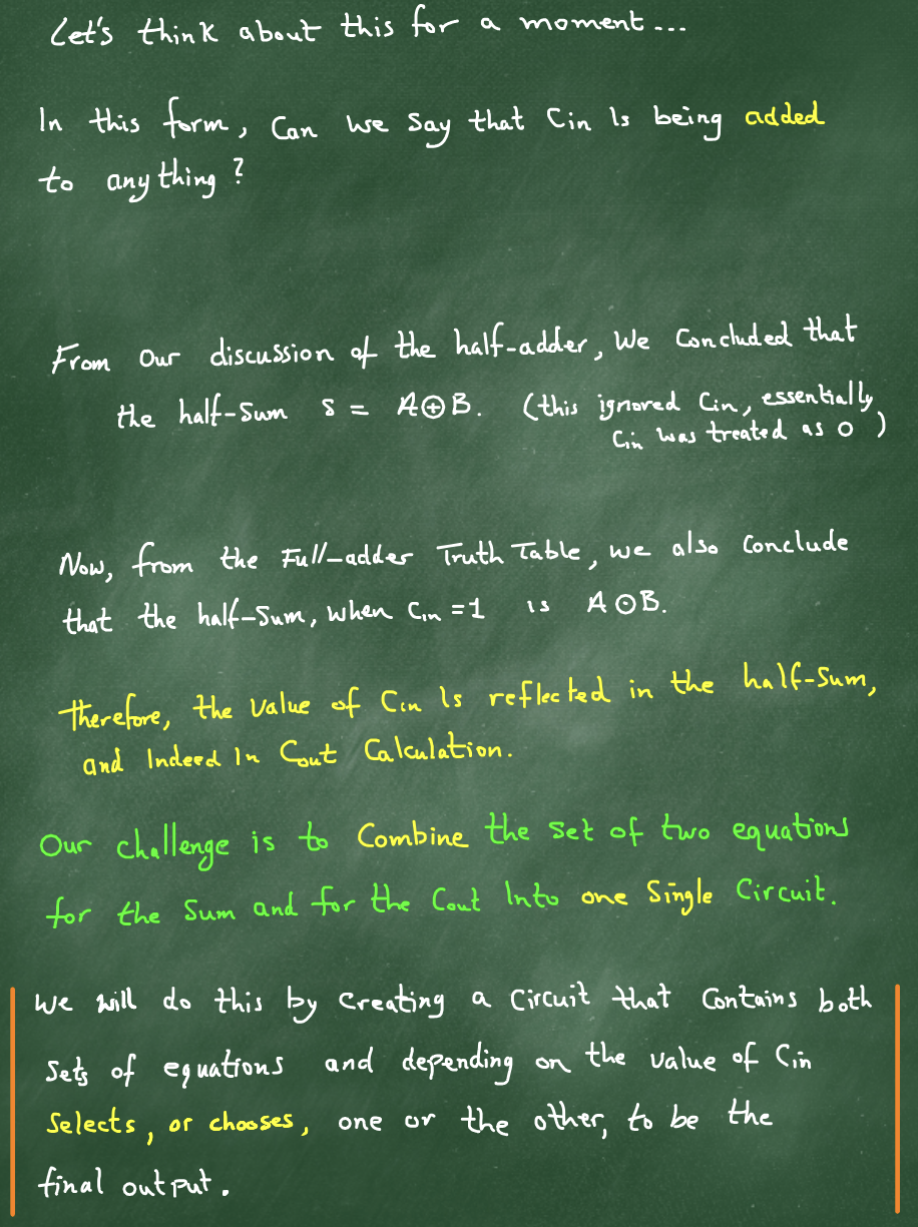 Let's think about this for a moment...
In this form, Can we say that Cin Is being added
to anything?
From our discussion of the half-adder, We Concluded that
the half-Sum S = A⊕B. (this ignored Cin, essentially,
Cin was treated as 0)
Now, from the Full-adder Truth Table, we also Conclude
that the half-Sum, when Cin =1 is A⊙B.
Therefore, the value of Cin Is reflected in the half-Sum,
and Indeed In Cout Calculation.
Our challenge is to Combine the set of two equations
for the Sum and for the Cout Into one Single Circuit.
We will do this by Creating a Circuit that Contains both
Sets of equations and depending on the value of Cin
Selects, or chooses, one or the other, to be the
final output.